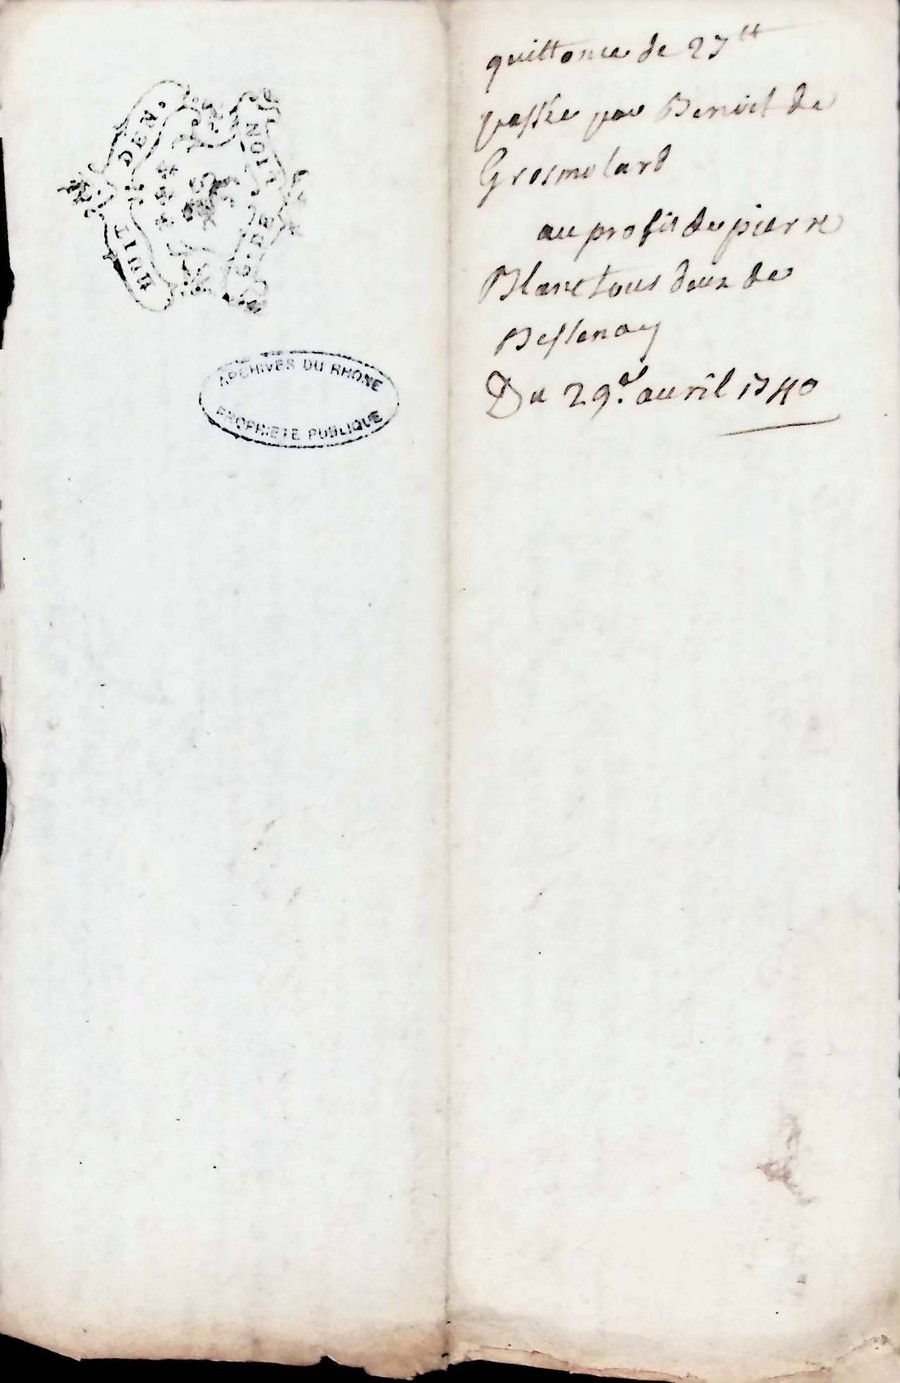 HUIT DEN.
G. DE LION
ARCHIVES DU RHONE
PROPRIETE PUBLIQUE
quittance de 27tt
passée par Benoit de
Grosmolard
au profit de pierre
Blanc tous deux de
Bessenay
Du 29e. avril 1740